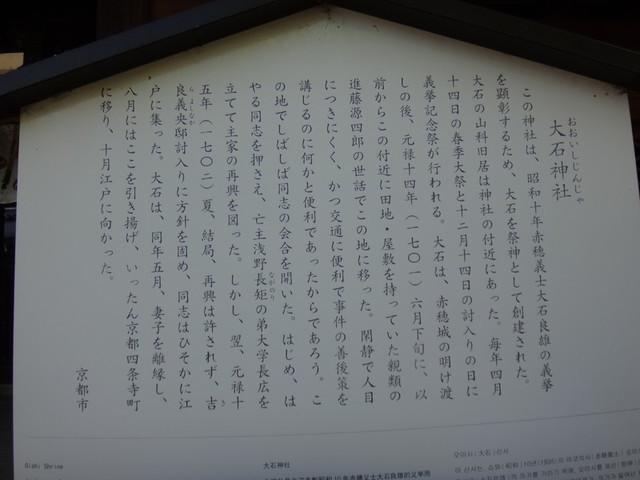 おおいしじんじゃ
大石神社
この神社は、昭和十年赤穂義士大石良雄の義挙
を顕彰するため、大石を祭神として創建された。
大石の山科旧居は神社の付近にあった。毎年四月
十四日の春季大祭と十二月十四日の討入りの日に
義挙記念祭が行われる。大石は、赤穂城の明け渡
しの後、元禄十四年（一七〇一）六月下旬に、以
前からこの付近に田地・屋敷を持っていた親類の
進藤源四郎の世話でこの地に移った。閑静で人目
につきにくく、かつ交通に便利で事件の善後策を
講じるのに何かと便利であったからであろう。こ
の地でしばしば同志の会合を開いた。はじめ、は
やる同志を押さえ、亡主浅野長矩の弟大学長広を
ながのり
立てて主家の再興を図った。しかし、翌、元禄十
五年（一七〇二）夏、結局、再興は許されず、吉
き
良義央邸討入りに方針を固め、同志はひそかに江
ら よしなか
戸に集った。大石は、同年五月、妻子を離縁し、
八月にはここを引き揚げ、いったん京都四条寺町
に移り、十月江戸に向かった。
京都市
Oishi Shrine
大石神社
오이시(大石)신사